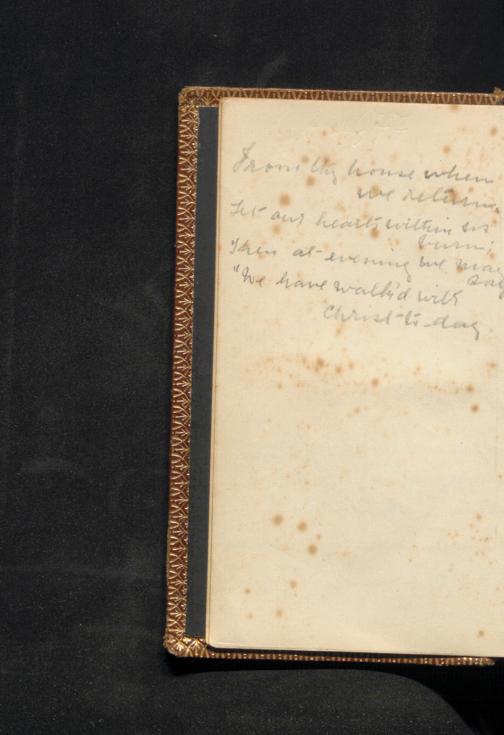 From thy house when
we return,
Let our hearts within us
burn;
Then at evening we may
say
"We have walk'd with
Christ to-day